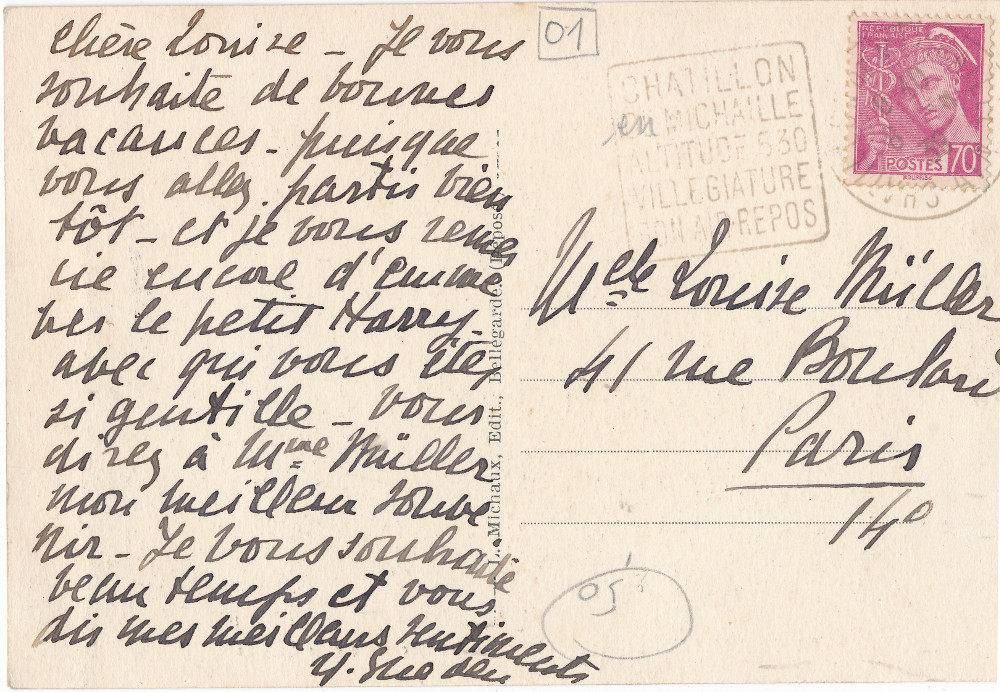 chère Louise - Je vous
souhaite de bonnes
vacances - puisque
vous allez partir bien
tôt - et je vous remer
cie encore d'emme
ner le petit Harry -
avec qui vous êtes
si gentille - Vous
direz à Mme Müller
mon meilleur souve
nir - Je vous souhaite
beau temps et vous
dis mes meilleurs sentiments
L. Michaux, Edit., Bellegarde. (Repos
01
CHATILLON
en MICHAILLE
ALTITUDE 530
VILLEGIATURE
BON AIR-REPOS
REPUBLIQUE
FRANÇAISE
POSTES 70c
Melle Louise Müller
41 rue Boulard
Paris
14e
05